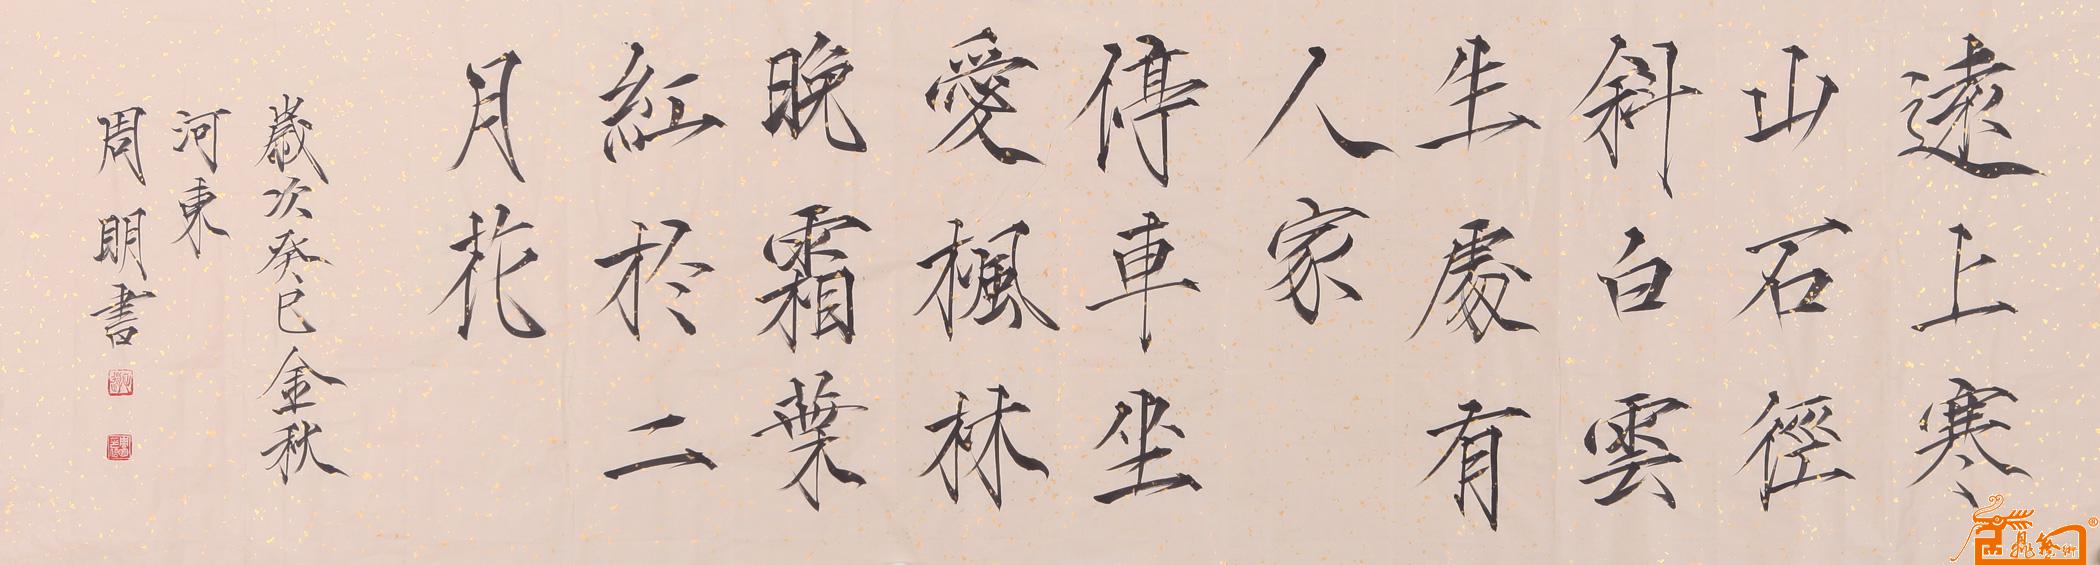 遠上寒
山石徑
斜白雲
生處有
人家
停車坐
愛楓林
晚霜葉
紅於二
月花
歲次癸巳金秋
河東
周明書